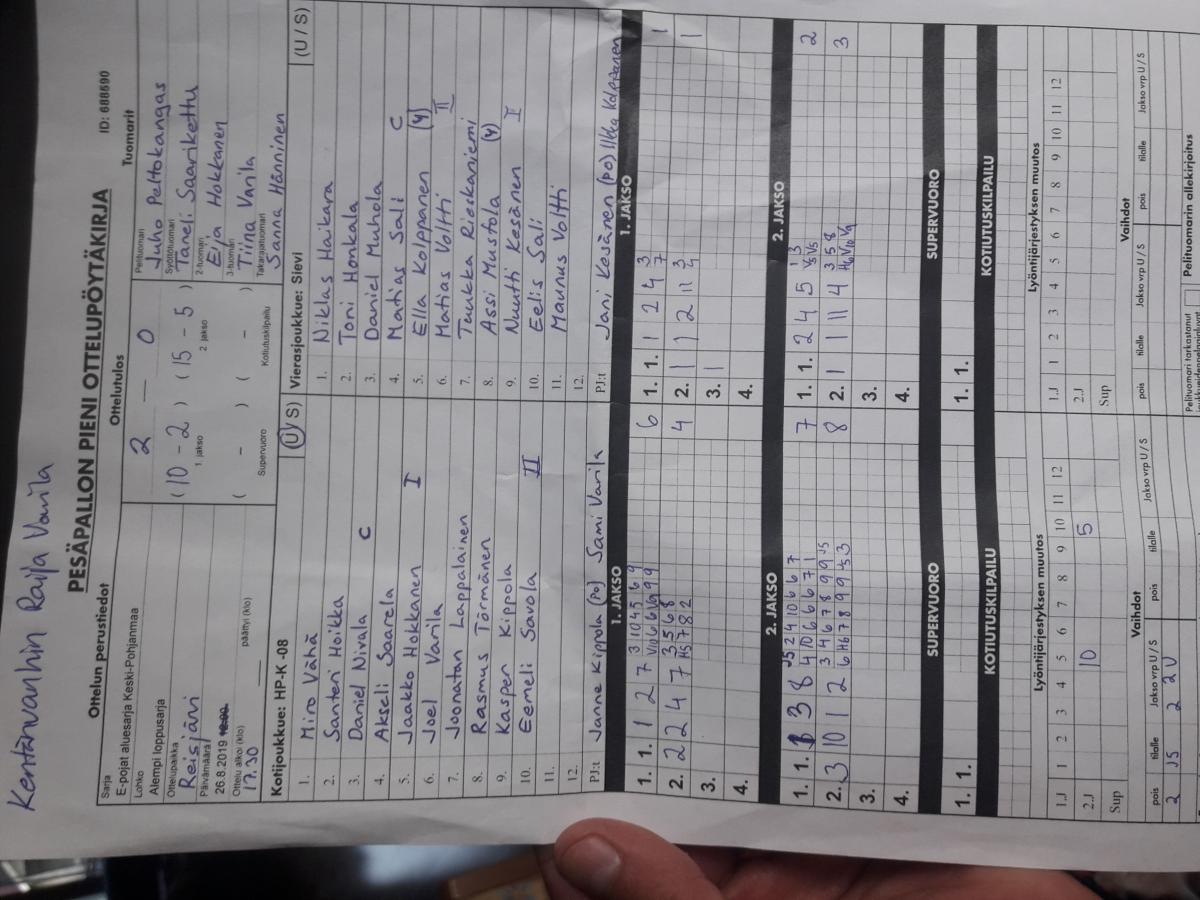 Kentänvanhin Raila Varila
PESÄPALLON PIENI OTTELUPÖYTÄKIRJA
ID: 688690
Ottelun perustiedot
Ottelutulos
Tuomarit
Sarja
E-pojat aluesarja Keski-Pohjanmaa
Lohko
Alempi loppusarja
Ottelupaikka
Reisjärvi
Päivämäärä
26.8.2019
Ottelu alkoi (klo)
17.30
päättyi (klo)
2 — 0
( 10 - 2 ) ( 15 - 5 )
1. jakso 2. jakso
( - ) ( - )
Supervuoro Kotiutuskilpailu
Pelituomari
Juho Peltokangas
Syöttötuomari
Taneli Saarikettu
2-tuomari
Eija Hokkanen
3-tuomari
Tiina Varila
Takarajatuomari
Sanna Hänninen
Kotijoukkue: HP-K -08 (U / S)
1. Miro Vähä
2. Santeri Hoikka
3. Daniel Nivala C
4. Akseli Saarela
5. Jaakko Hokkanen I
6. Joel Varila
7. Joonatan Lappalainen
8. Rasmus Törmänen
9. Kasper Kippola
10. Eemeli Savola II
11.
12.
PJ:t Janne Kippola (po) Sami Varila
Vierasjoukkue: Sievi (U / S)
1. Niklas Haikara
2. Toni Honkala
3. Daniel Muhola
4. Matias Sali C
5. Ella Kolppanen (4)
6. Matias Voltti II
7. Tuukka Rieskaniemi
8. Assi Mustola (4)
9. Nuutti Kesänen I
10. Eelis Sali
11. Maunus Voltti
12.
PJ:t Jani Kesänen (po) Ilkka Kolppanen
1. JAKSO
1. 1. 1 2 7 6
2. 2 2 4 7 4
3.
4.
1. JAKSO
1. 1. 1 2 4 1
2. 1 1 2 11 1
3. 1
4.
2. JAKSO
1. 1. 3 8 7
2. 3 10 1 2 8
3.
4.
2. JAKSO
1. 1. 2 4 5 2
2. 1 1 11 4 3
3.
4.
SUPERVUORO
1. 1.
SUPERVUORO
1. 1.
KOTIUTUSKILPAILU
KOTIUTUSKILPAILU
Lyöntijärjestyksen muutos
1.J 1 2 3 4 5 6 7 8 9 10 11 12
2.J 10 5
Sup
Lyöntijärjestyksen muutos
1.J 1 2 3 4 5 6 7 8 9 10 11 12
2.J
Sup
Vaihdot
pois tilalle Jakso vrp U / S pois tilalle Jakso vrp U / S
2 J5 2 2U
Vaihdot
pois tilalle Jakso vrp U / S pois tilalle Jakso vrp U / S
Pelituomari tarkastanut
Pelituomarin allekirjoitus